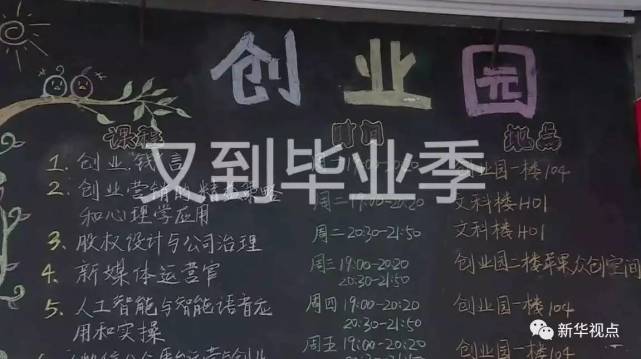 创业园
课程 时间 地点
又到毕业季
1. 创业钱言 19:00-20:20 创业园一楼104
2. 创业营销的精益策略 周二 19:00-20:20 文科楼H01
和心理学应用
3. 股权设计与公司治理 周二 20:30-21:50 文科楼H01
4. 新媒体运营官 周三 19:00-20:20 创业园二楼苹果众创空间
20:30-21:50
5. 人工智能与智能语音应 周四 19:00-20:20 创业园一楼104
用和实操 20:30-21:50
周五 19:00-20:20 创业园一楼104
新华视点